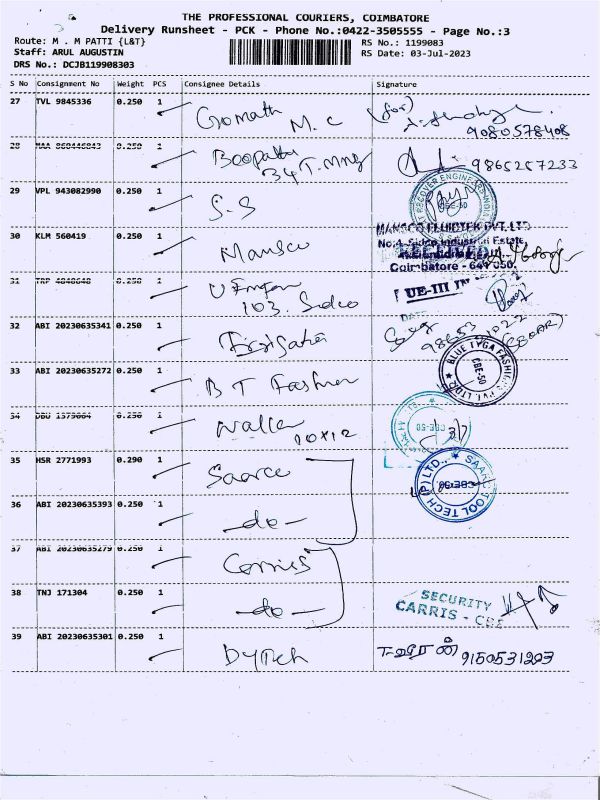 THE PROFESSIONAL COURIERS, COIMBATORE
Delivery Runsheet - PCK - Phone No.:0422-3505555 - Page No.:3
Route: M . M PATTI {L&T} RS No.: 1199083
Staff: ARUL AUGUSTIN RS Date: 03-Jul-2023
DRS No.: DCJB119908303
S No Consignment No Weight PCS Consignee Details Signature
27 TVL 9845336 0.250 1 Gomath M.C (for)
9080578408
28 MAA 0.250 1 Boopathi
34 T.MNG 9865257233
29 VPL 943082990 0.250 1 S.S
RECOVER ENGINEERS INDIA
CBE-50
30 KLM 560419 0.250 1 Mansco
MANSCO FLUIDTEK PVT. LTD
No.4, Sidco Industrial Estate,
Coimbatore - 641 050.
31 TRP 4848648 0.250 1
103. Sidco UE-III
DATE
32 ABI 20230635341 0.250 1
33 ABI 20230635272 0.250 1 B T Fashion
BLUE TYGA FASHIONS PVT. LTD.
CBE-50
34 DBO 1379064 0.250 1
10x12
CBE-50
35 HSR 2771993 0.290 1 Saarce
SAARC TOOL TECH (P) LTD.,
CBE-50
36 ABI 20230635393 0.250 1 -do-
37 ABI 20230635279 0.250 1 Carriss
38 TNJ 171304 0.250 1 -do-
SECURITY
CARRIS - CBE
39 ABI 20230635301 0.250 1 Dytech 9150531293